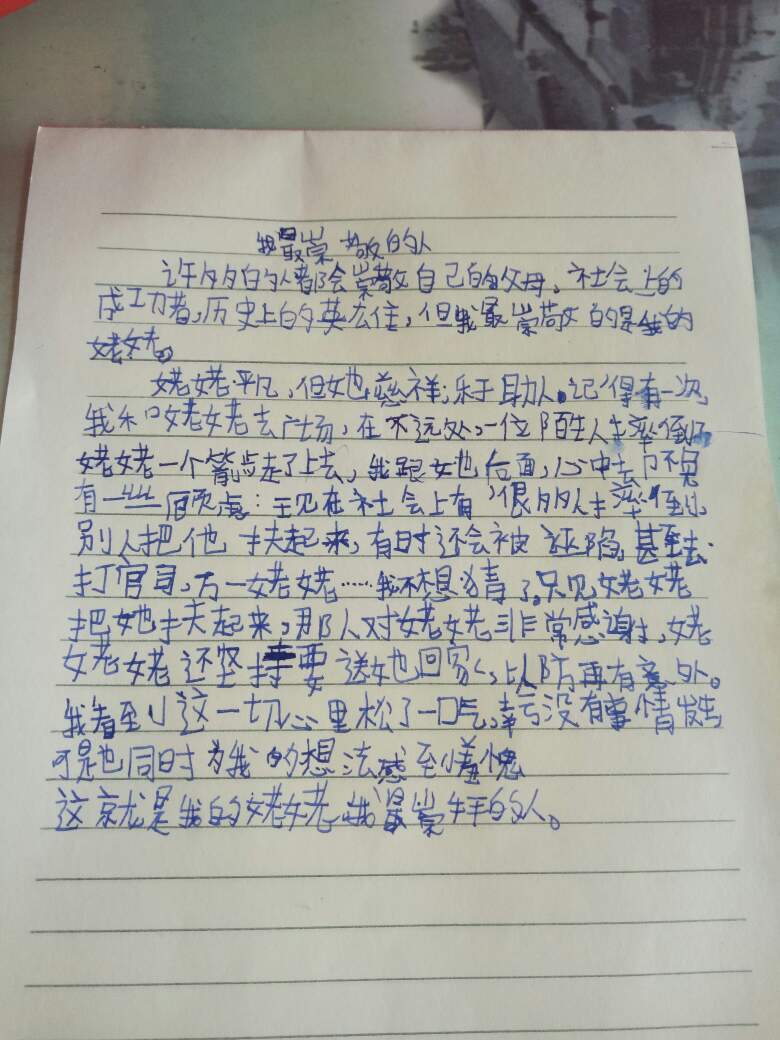 我最崇敬的人
许多的人都会崇敬自己的父母、社会上的
成功者,历史上的英雄,但我最崇敬的是我的
姥姥。
姥姥平凡,但她慈祥,乐于助人。记得有一次,
我和姥姥去广场,在不远处,一位陌生人摔倒了
姥姥一个箭步走了上去,我跟她后面,心中却不免
有一丝顾虑:现在社会上有很多人摔倒,
别人把他扶起来,有时还会被诬陷,甚至去
打官司,万一姥姥……我不想猜了。只见姥姥
把她扶起来,那人对姥姥非常感谢,姥
姥姥还坚持要送她回家,以防再有意外。
我看到这一切心里松了一口气,幸亏没有事情发生
可是也同时为我的想法感到羞愧
这就是我的姥姥,我最崇拜的人。